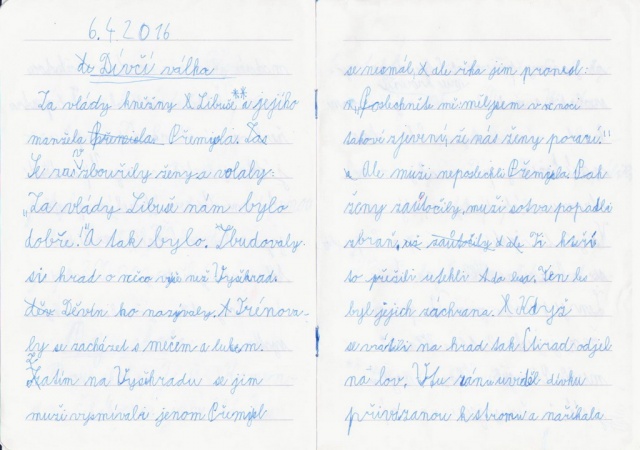 6.4.2016
Dívčí válka
Za vlády kněžny Libuše a jejího
manžela Přemisla Přemysla.
se vzbouřily ženy a volaly:
„Za vlády Libuše nám bylo
dobře!" A tak bylo. Zbudovaly
si hrad o něco níž než Vyšehrad.
Děvín ho nazývaly. Trénova-
ly se zacházet s mečem a lukem.
Zatím na Vyšehradu se jim
muži vysmívali jenom Přemysl
se nesmál, ale říka jim proned:
„Poslechněte mě: měl jsem v noci
takové zjevný, že nás ženy porazí."
Ale muži neposlechli Přemysla. Pak
ženy zaútočily, muži sotva popadli
zbraň, už zaútočily Ti kteří
to přežili utekli do lesa. Ten les
byl jejich záchrana. Když
se vrátili na hrad tak Ctirad odjel
na lov. V tu ránu uviděl dívku
přivázanou k stromu a naříkala